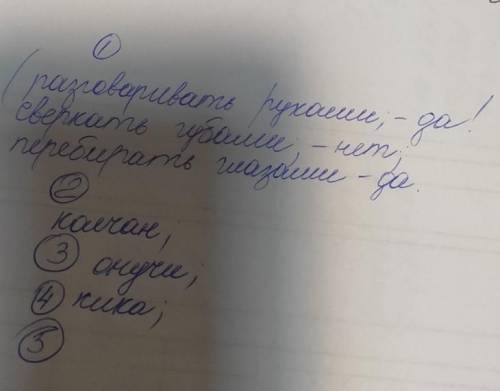 ①
(разговаривать руками, - да!
сверкать губами, - нет;
перебирать глазами - да.
②
колчан;
③ онучи;
④ чика;
⑤